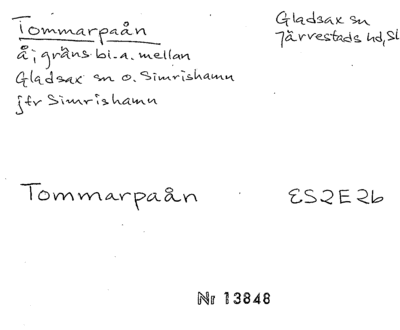 Tommarpaån
å; gräns bl.a. mellan
Gladsax sn o. Simrishamn
jfr Simrishamn
Gladsax sn
Järrestads hd, Sk
Tommarpaån
ES2E2b
Nr 13848